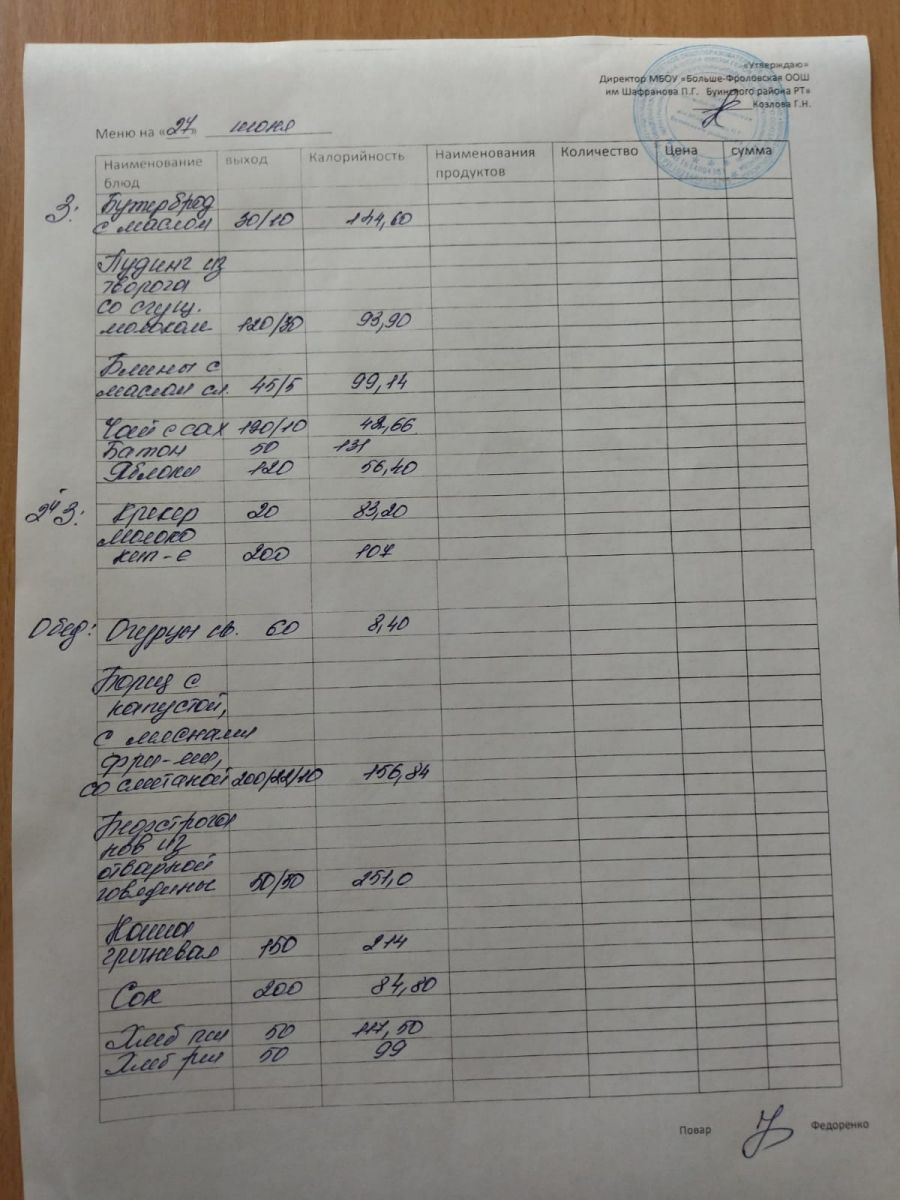 «Утверждаю»
Директор МБОУ «Больше-Фроловская ООШ
им Шафранова П.Г. Буинского района РТ»
Козлова Г.Н.
Меню на «27» июня
Наименование блюд выход Калорийность Наименования продуктов Количество Цена сумма
З: Бутерброд
с маслом 30/10 144,60
Пудинг из
творога
со сгущ.
молоком 120/30 93,90
Блины с
маслом сл. 45/5 99,14
Чай с сах 190/10 42,66
Батон 50 131
Яблоки 120 56,40
2й З: Крекер 20 83,20
молоко
кип-е 200 107
Обед: Огурцы св. 60 8,40
Борщ с
капустой,
с мясными
фри-ми,
со сметаной 200/22/10 156,84
Беострога
нов из
отварной
говядины 50/50 251,0
Каша
гречневая 150 214
Сок 200 84,80
Хлеб пш 50 117,50
Хлеб рж 50 99
Повар Федоренко